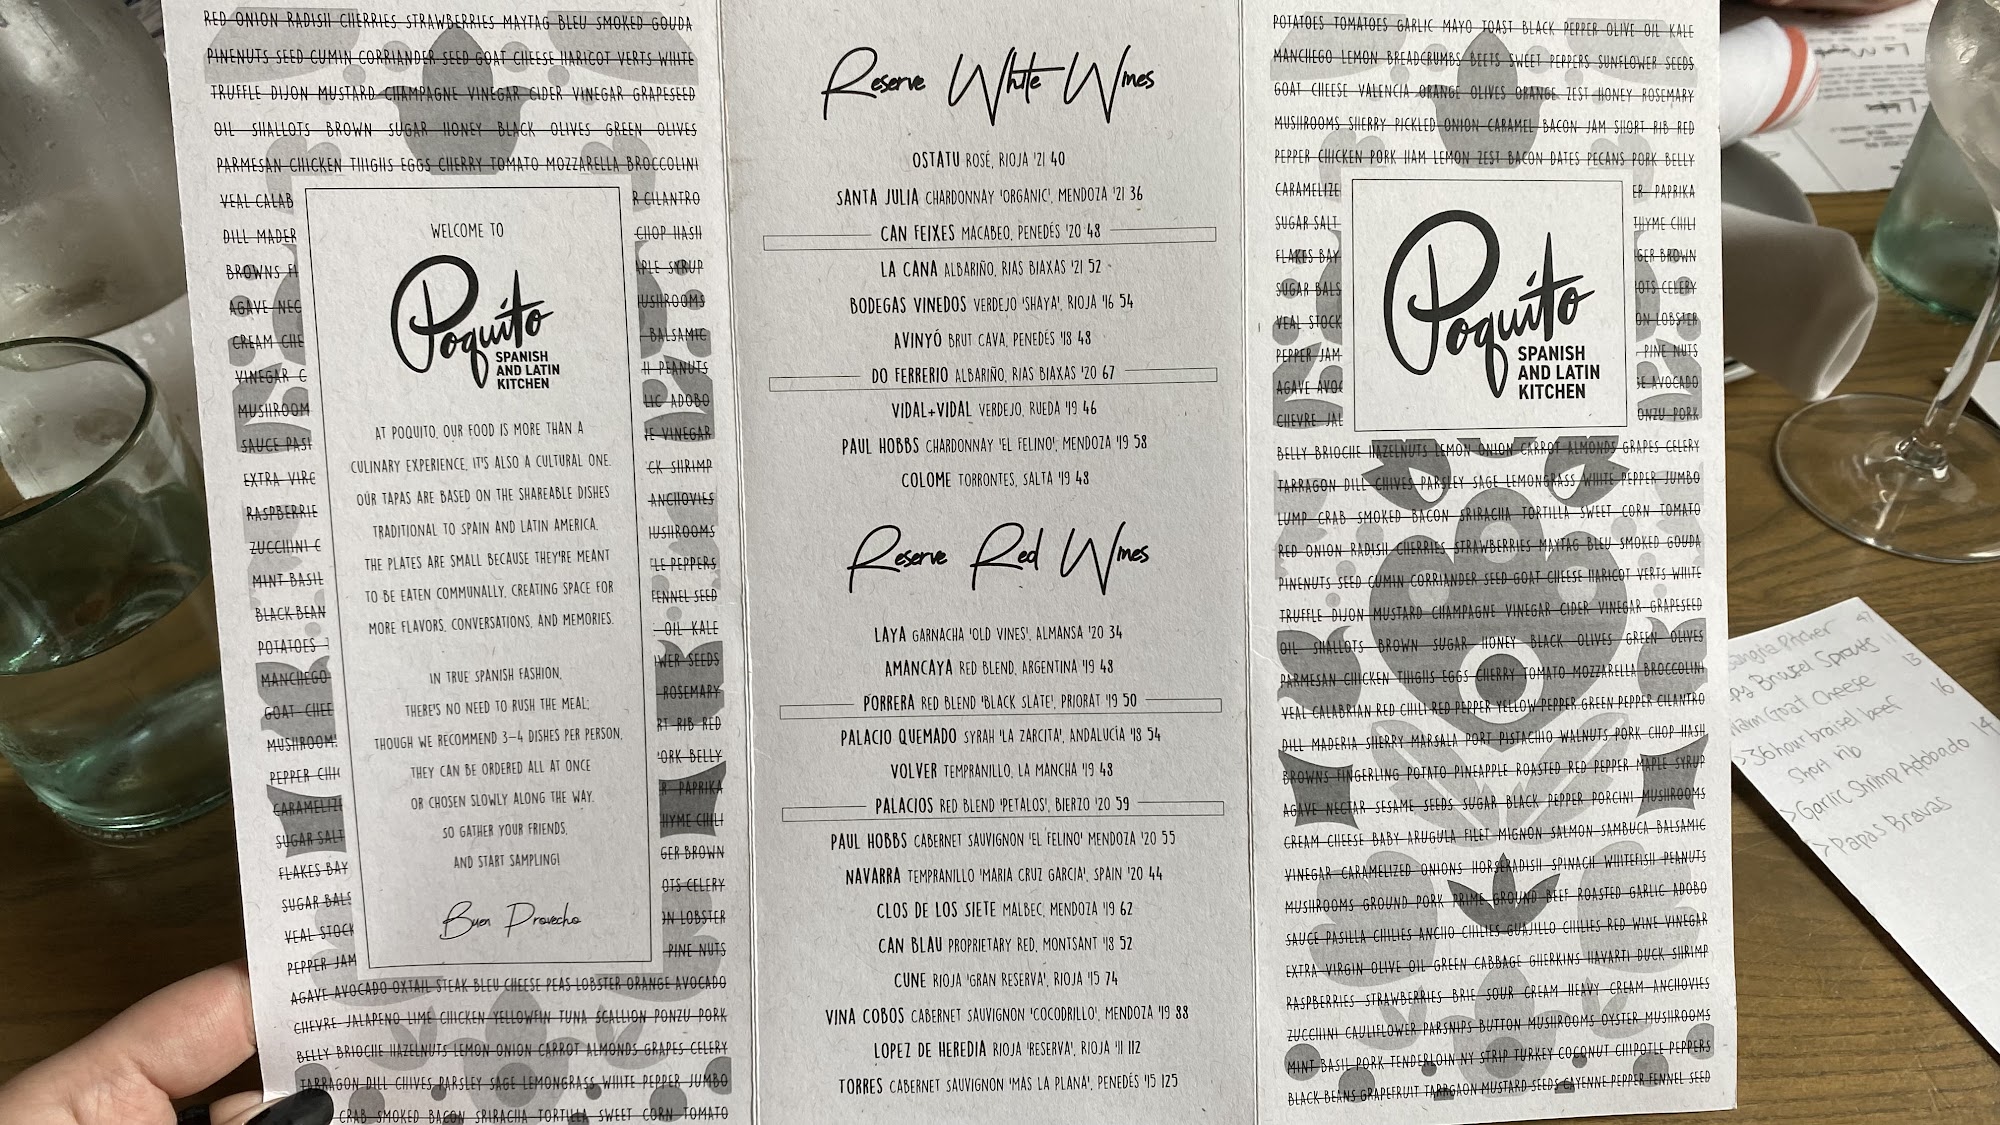 RED ONION RADISH CHERRIES STRAWBERRIES MAYTAG BLEU SMOKED GOUDA
PINENUTS SEED CUMIN CORRIANDER SEED GOAT CHEESE HARICOT VERTS WHITE
TRUFFLE DIJON MUSTARD CHAMPAGNE VINEGAR CIDER VINEGAR GRAPESEED
OIL SHALLOTS BROWN SUGAR HONEY BLACK OLIVES GREEN OLIVES
PARMESAN CHICKEN THIGHS EGGS CHERRY TOMATO MOZZARELLA BROCCOLINI
VEAL CALAB
R CILANTRO
DILL MADER
CHOP HASH
BROWNS FI
PLE SYRUP
AGAVE NEC
USHROOMS
CREAM CHE
BALSAMIC
VINEGAR C
H PEANUTS
MUSHROOM
LIC ADOBO
SAUCE PASI
E VINEGAR
EXTRA VIRG
CK SHRIMP
RASPBERRIE
ANCHOVIES
ZUCCHINI C
USHROOMS
MINT BASIL
LE PEPPERS
BLACK BEAN
FENNEL SEED
POTATOES
OIL KALE
MANCHEGO
WER SEEDS
GOAT CHEE
ROSEMARY
MUSHROOM
RT RIB RED
PEPPER CHI
ORK BELLY
CARAMELIZE
R PAPRIKA
SUGAR SALT
HYME CHILI
FLAKES BAY
GER BROWN
SUGAR BALS
OTS CELERY
VEAL STOCK
ON LOBSTER
PEPPER JAM
PINE NUTS
WELCOME TO
Poquito
SPANISH
AND LATIN
KITCHEN
AT POQUITO, OUR FOOD IS MORE THAN A
CULINARY EXPERIENCE, IT'S ALSO A CULTURAL ONE.
OUR TAPAS ARE BASED ON THE SHAREABLE DISHES
TRADITIONAL TO SPAIN AND LATIN AMERICA.
THE PLATES ARE SMALL BECAUSE THEY'RE MEANT
TO BE EATEN COMMUNALLY, CREATING SPACE FOR
MORE FLAVORS, CONVERSATIONS, AND MEMORIES.
IN TRUE SPANISH FASHION,
THERE'S NO NEED TO RUSH THE MEAL;
THOUGH WE RECOMMEND 3–4 DISHES PER PERSON,
THEY CAN BE ORDERED ALL AT ONCE
OR CHOSEN SLOWLY ALONG THE WAY.
SO GATHER YOUR FRIENDS,
AND START SAMPLING!
Buen Provecho
AGAVE AVOCADO OXTAIL STEAK BLEU CHEESE PEAS LOBSTER ORANGE AVOCADO
CHEVRE JALAPENO LIME CHICKEN YELLOWFIN TUNA SCALLION PONZU PORK
BELLY BRIOCHE HAZELNUTS LEMON ONION CARROT ALMONDS GRAPES CELERY
TARRAGON DILL CHIVES PARSLEY SAGE LEMONGRASS WHITE PEPPER JUMBO
CRAB SMOKED BACON SRIRACHA TORTILLA SWEET CORN TOMATO
Reserve White Wines
OSTATU ROSÉ, RIOJA '21 40
SANTA JULIA CHARDONNAY 'ORGANIC', MENDOZA '21 36
CAN FEIXES MACABEO, PENEDÉS '20 48
LA CANA ALBARIÑO, RIAS BIAXAS '21 52
BODEGAS VINEDOS VERDEJO 'SHAYA', RIOJA '16 54
AVINYÓ BRUT CAVA, PENEDÉS '18 48
DO FERRERIO ALBARIÑO, RIAS BIAXAS '20 67
VIDAL+VIDAL VERDEJO, RUEDA '19 46
PAUL HOBBS CHARDONNAY 'EL FELINO', MENDOZA '19 58
COLOME TORRONTES, SALTA '19 48
Reserve Red Wines
LAYA GARNACHA 'OLD VINES', ALMANSA '20 34
AMANCAYA RED BLEND, ARGENTINA '19 48
PORRERA RED BLEND 'BLACK SLATE', PRIORAT '19 50
PALACIO QUEMADO SYRAH 'LA ZARCITA', ANDALUCÍA '18 54
VOLVER TEMPRANILLO, LA MANCHA '19 48
PALACIOS RED BLEND 'PETALOS', BIERZO '20 59
PAUL HOBBS CABERNET SAUVIGNON 'EL FELINO' MENDOZA '20 55
NAVARRA TEMPRANILLO 'MARIA CRUZ GARCIA', SPAIN '20 44
CLOS DE LOS SIETE MALBEC, MENDOZA '19 62
CAN BLAU PROPRIETARY RED, MONTSANT '18 52
CUNE RIOJA 'GRAN RESERVA', RIOJA '15 74
VINA COBOS CABERNET SAUVIGNON 'COCODRILLO', MENDOZA '19 88
LOPEZ DE HEREDIA RIOJA 'RESERVA', RIOJA '11 112
TORRES CABERNET SAUVIGNON 'MAS LA PLANA', PENEDÉS '15 125
POTATOES TOMATOES GARLIC MAYO TOAST BLACK PEPPER OLIVE OIL KALE
MANCHEGO LEMON BREADCRUMBS BEETS SWEET PEPPERS SUNFLOWER SEEDS
GOAT CHEESE VALENCIA ORANGE OLIVES ORANGE ZEST HONEY ROSEMARY
MUSHROOMS SHERRY PICKLED ONION CARAMEL BACON JAM SHORT RIB RED
PEPPER CHICKEN PORK HAM LEMON ZEST BACON DATES PECANS PORK BELLY
CARAMELIZE
ER PAPRIKA
SUGAR SALT
THYME CHILI
FLAKES BAY
GER BROWN
SUGAR BALS
OTS CELERY
VEAL STOCK
ON LOBSTER
PEPPER JAM
PINE NUTS
AGAVE AVOC
GE AVOCADO
CHEVRE JAL
ONZU PORK
Poquito
SPANISH
AND LATIN
KITCHEN
BELLY BRIOCHE HAZELNUTS LEMON ONION CARROT ALMONDS GRAPES CELERY
TARRAGON DILL CHIVES PARSLEY SAGE LEMONGRASS WHITE PEPPER JUMBO
LUMP CRAB SMOKED BACON SRIRACHA TORTILLA SWEET CORN TOMATO
RED ONION RADISH CHERRIES STRAWBERRIES MAYTAG BLEU SMOKED GOUDA
PINENUTS SEED CUMIN CORRIANDER SEED GOAT CHEESE HARICOT VERTS WHITE
TRUFFLE DIJON MUSTARD CHAMPAGNE VINEGAR CIDER VINEGAR GRAPESEED
OIL SHALLOTS BROWN SUGAR HONEY BLACK OLIVES GREEN OLIVES
PARMESAN CHICKEN THIGHS EGGS CHERRY TOMATO MOZZARELLA BROCCOLINI
VEAL CALABRIAN RED CHILI RED PEPPER YELLOW PEPPER GREEN PEPPER CILANTRO
DILL MADERIA SHERRY MARSALA PORT PISTACHIO WALNUTS PORK CHOP HASH
BROWNS FINGERLING POTATO PINEAPPLE ROASTED RED PEPPER MAPLE SYRUP
AGAVE NECTAR SESAME SEEDS SUGAR BLACK PEPPER PORCINI MUSHROOMS
CREAM CHEESE BABY ARUGULA FILET MIGNON SALMON SAMBUCA BALSAMIC
VINEGAR CARAMELIZED ONIONS HORSERADISH SPINACH WHITEFISH PEANUTS
MUSHROOMS GROUND PORK PRIME GROUND BEEF ROASTED GARLIC ADOBO
SAUCE PASILLA CHILIES ANCHO CHILIES GUAJILLO CHILIES RED WINE VINEGAR
EXTRA VIRGIN OLIVE OIL GREEN CABBAGE GHERKINS HAVARTI DUCK SHRIMP
RASPBERRIES STRAWBERRIES BRIE SOUR CREAM HEAVY CREAM ANCHOVIES
ZUCCHINI CAULIFLOWER PARSNIPS BUTTON MUSHROOMS OYSTER MUSHROOMS
MINT BASIL PORK TENDERLOIN NY STRIP TURKEY COCONUT CHIPOTLE PEPPERS
BLACK BEANS GRAPEFRUIT TARRGAON MUSTARD SEEDS CAYENNE PEPPER FENNEL SEED
Sangria Pitcher 47
Brussel Sprouts 11
Warm Goat Cheese 13
>36hour braisel beef 16
Short rib
>Garlic Shrimp Adobado 14
>Papas Bravas